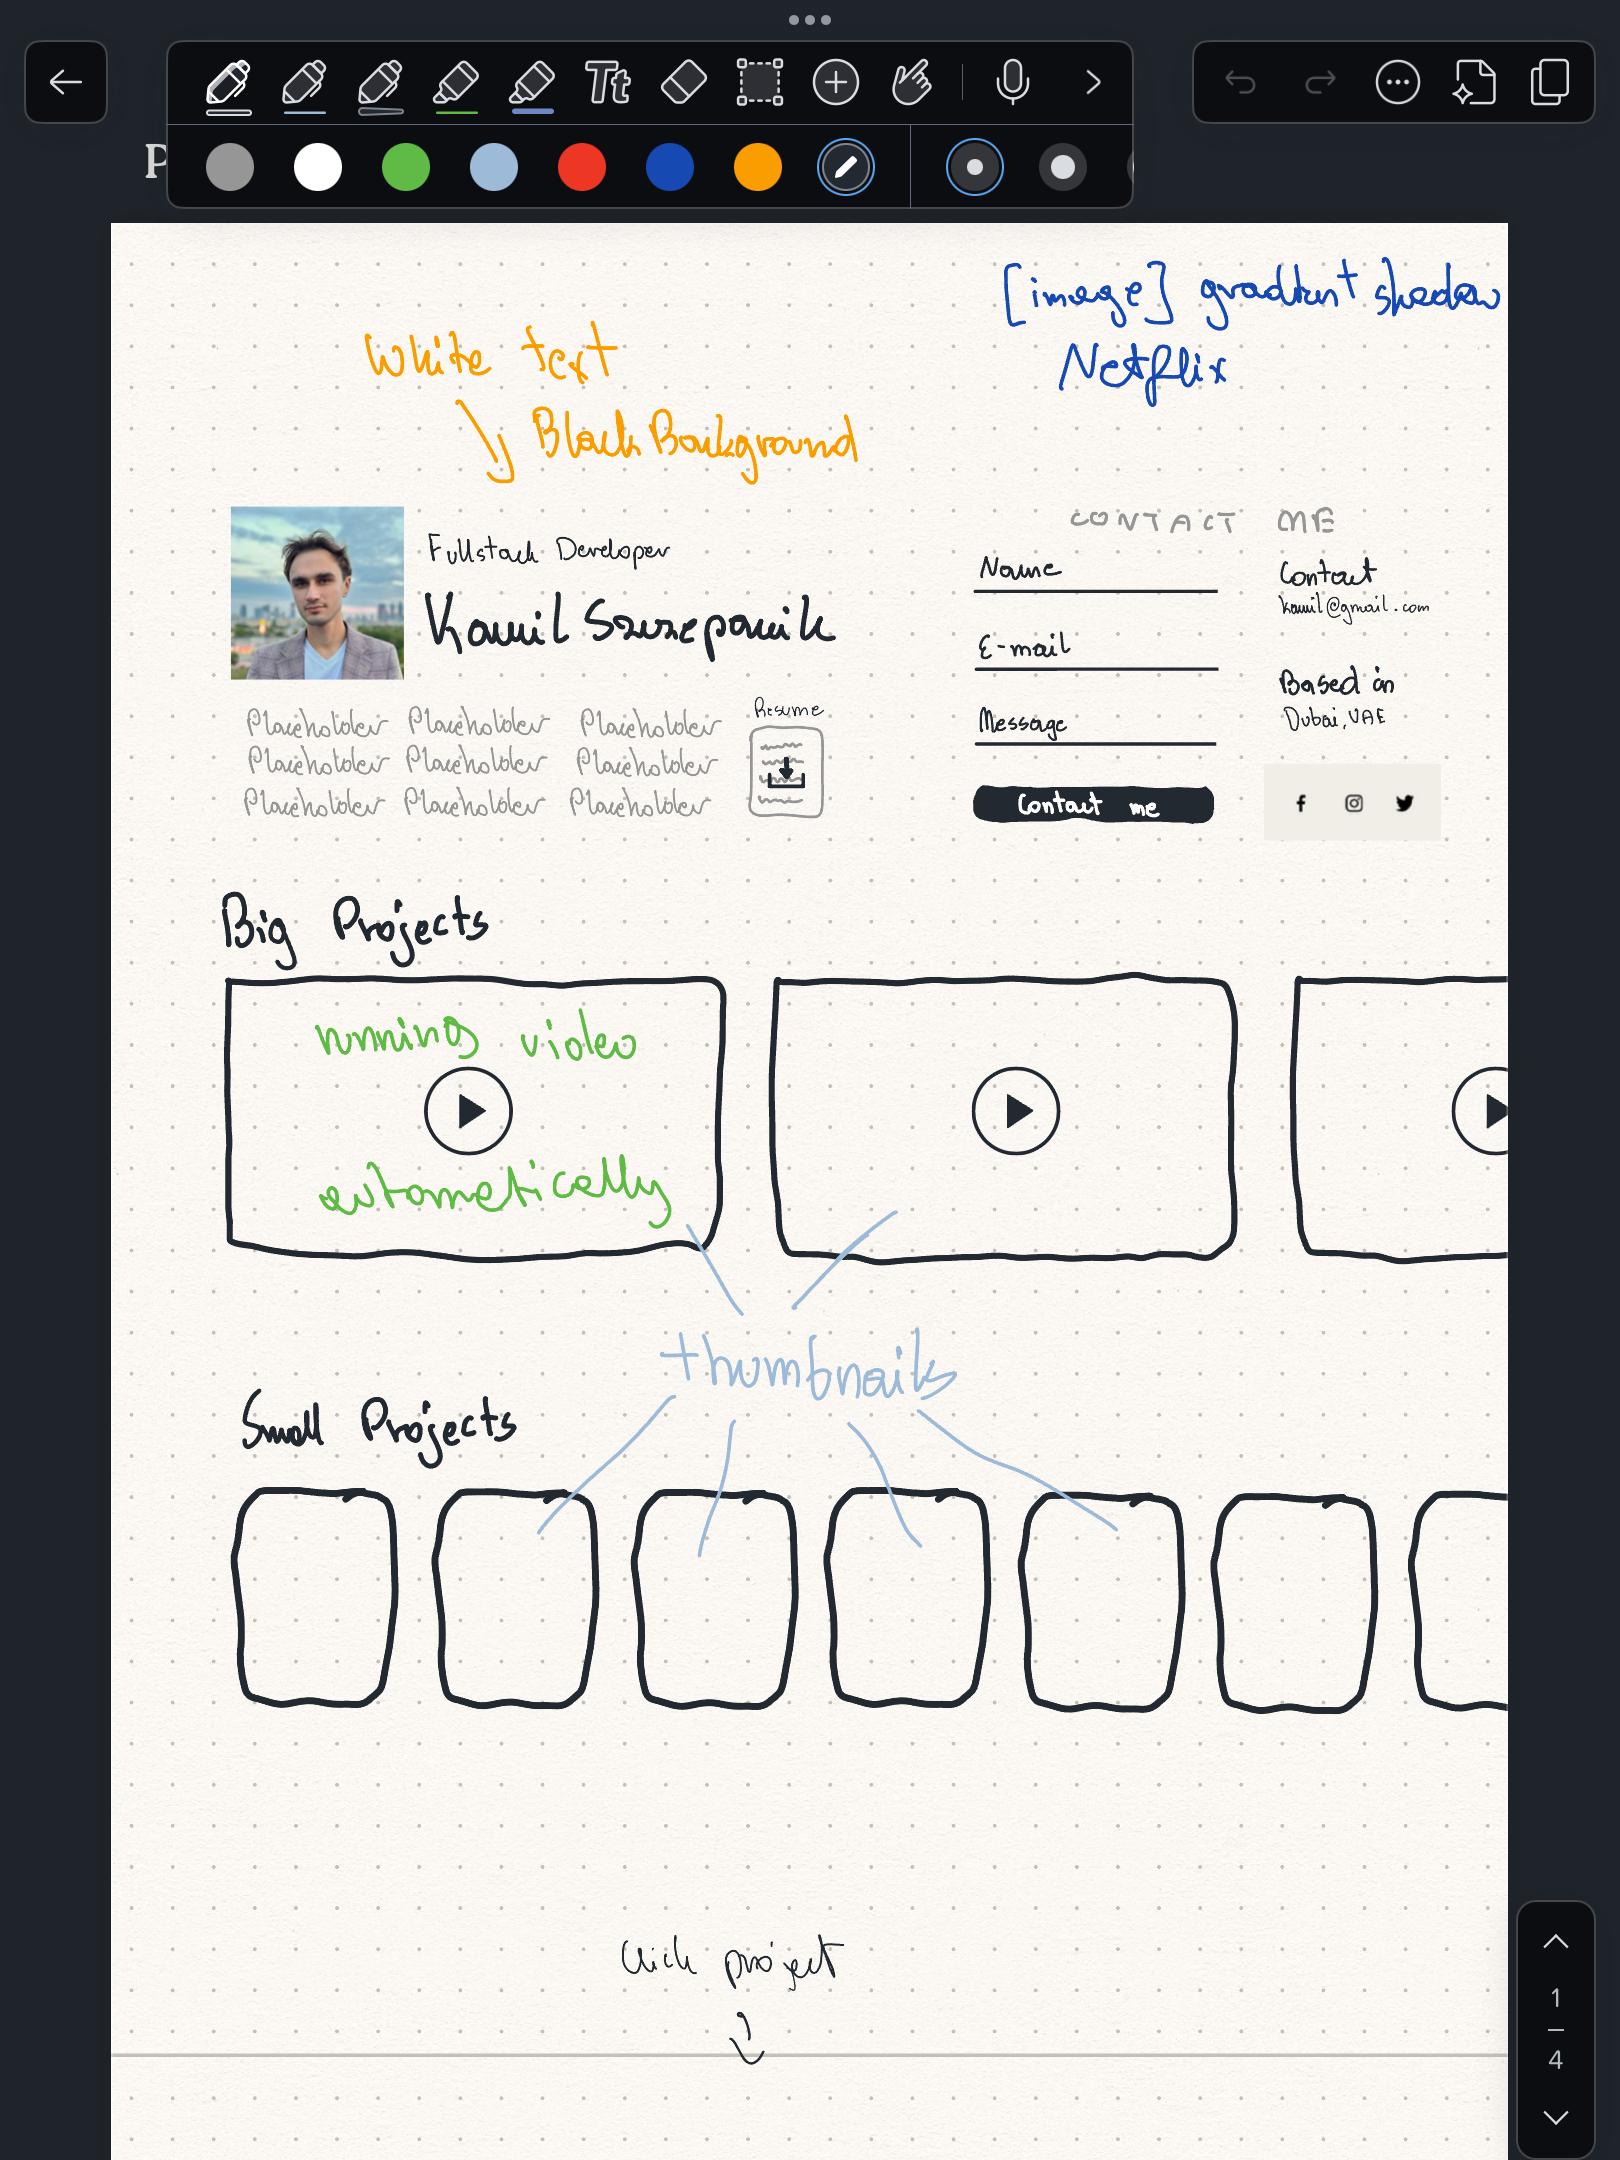 P
Tt
[image] gradient shadow
Netflix
White text
Black Background
Fullstack Developer
Kamil Szczepanik
Placeholder Placeholder Placeholder
Placeholder Placeholder Placeholder
Placeholder Placeholder Placeholder
Resume
CONTACT ME
Name
E-mail
Message
Contact me
Contact
kamil@gmail.com
Based in
Dubai, UAE
Big Projects
running video
automatically
thumbnails
Small Projects
Click project
1
4